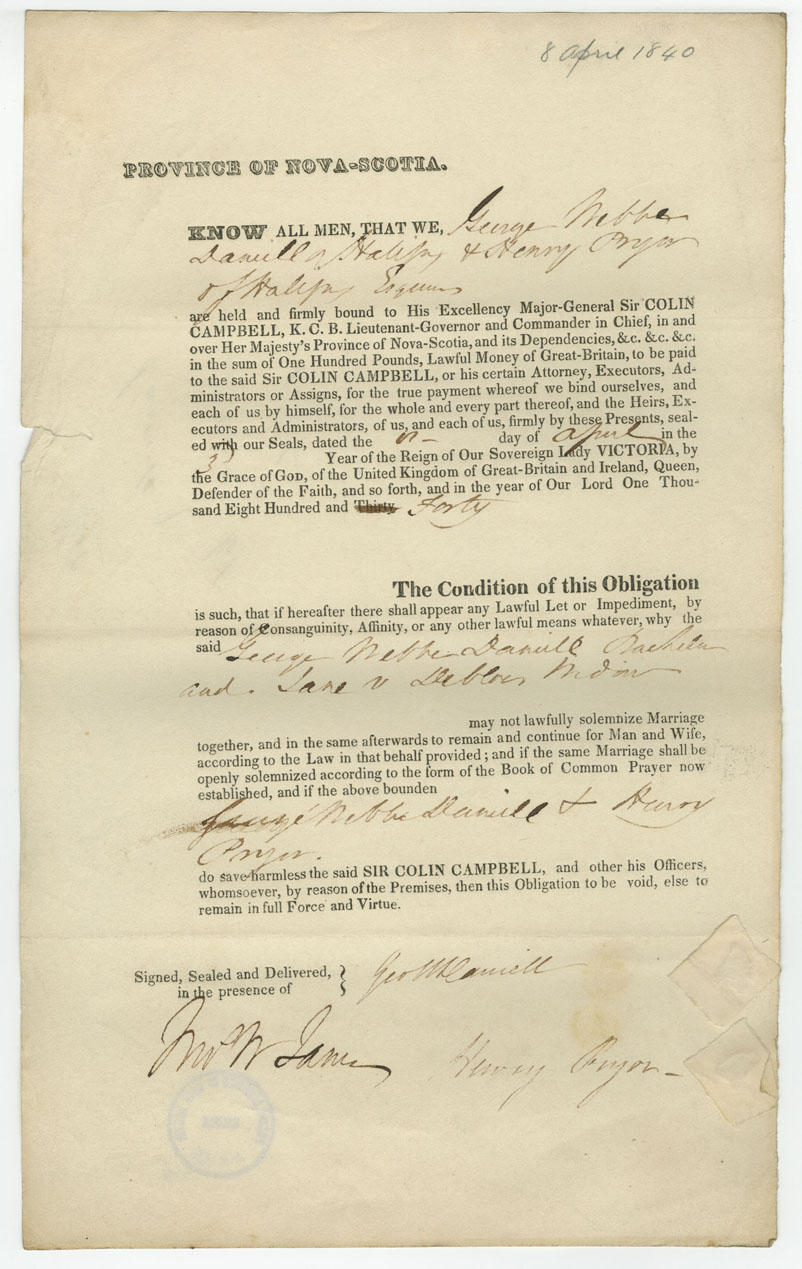 8 April 1840
PROVINCE OF NOVA-SCOTIA.
KNOW ALL MEN, THAT WE, George Webbe
Daniell of Halifax & Henry Pryor
of Halifax Esquires
are held and firmly bound to His Excellency Major-General Sir COLIN
CAMPBELL, K. C. B. Lieutenant-Governor and Commander in Chief, in and
over Her Majesty's Province of Nova-Scotia, and its Dependencies, &c. &c. &c.
in the sum of One Hundred Pounds, Lawful Money of Great-Britain, to be paid
to the said Sir COLIN CAMPBELL, or his certain Attorney, Executors, Ad-
ministrators or Assigns, for the true payment whereof we bind ourselves, and
each of us by himself, for the whole and every part thereof, and the Heirs, Ex-
ecutors and Administrators, of us, and each of us, firmly by these Presents, seal-
ed with our Seals, dated the 8 day of April in the
3 Year of the Reign of Our Sovereign Lady VICTORIA, by
the Grace of GOD, of the United Kingdom of Great-Britain and Ireland, Queen,
Defender of the Faith, and so forth, and in the year of Our Lord One Thou-
sand Eight Hundred and Thirty Forty
The Condition of this Obligation
is such, that if hereafter there shall appear any Lawful Let or Impediment, by
reason of Consanguinity, Affinity, or any other lawful means whatever, why the
said George Webbe Daniell Bachelor
and Jane V Deblois Widow
may not lawfully solemnize Marriage
together, and in the same afterwards to remain and continue for Man and Wife,
according to the Law in that behalf provided; and if the same Marriage shall be
openly solemnized according to the form of the Book of Common Prayer now
established, and if the above bounden
George Webbe Daniell & Henry
Pryor.
do save harmless the said SIR COLIN CAMPBELL, and other his Officers,
whomsoever, by reason of the Premises, then this Obligation to be void, else to
remain in full Force and Virtue.
Signed, Sealed and Delivered,
in the presence of
Geo W Daniell
W James
Henry Pryor